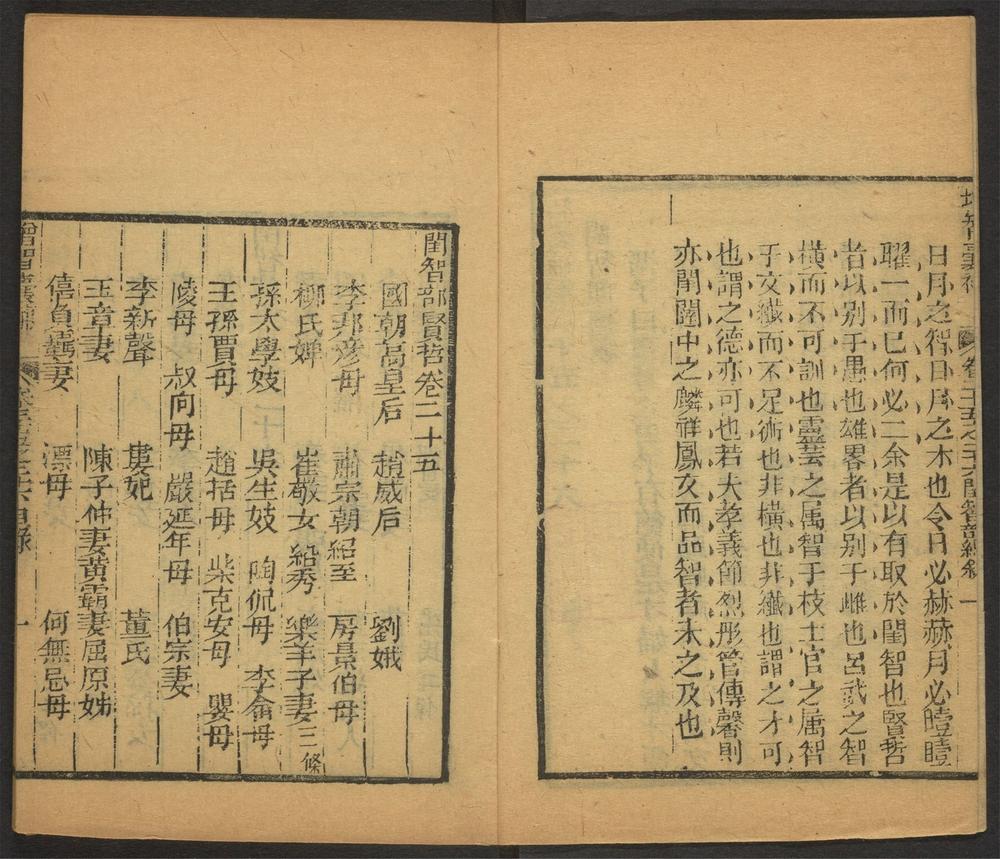 增智囊補 卷二十五之二十六閨智部總敘 一
日月之智日月之木也令日必赫赫月必曀曀
耀一而已何必二余是以有取於閨智也賢哲
者以别于愚也雄畧者以别于雌也呂武之智
橫而不可訓也靈芸之屬智于枝士官之属智
于文纖而不足術也非橫也非纖也謂之才可
也謂之德亦可也若夫孝義節烈彤管傳馨則
亦閨閫中之麟祥鳳文而品智者未之及也
閨智部賢哲卷二十五
國朝高皇后 趙威后 劉娥
李邦彦母 肅宗朝紹至 房景伯母
柳氏婢 崔敬女 絡秀 樂羊子妻三條
孫太學妓 吳生妓 陶侃母 李畬母
王孫賈母 趙括母 柴克安母 嬰母
陵母 叔向母 嚴延年母 伯宗妻
李新聲 婁妃 董氏
王章妻 陳子仲妻 黃霸妻 屈原姊
僖負羈妻 漂母 何無忌母
增智囊補 目錄 一